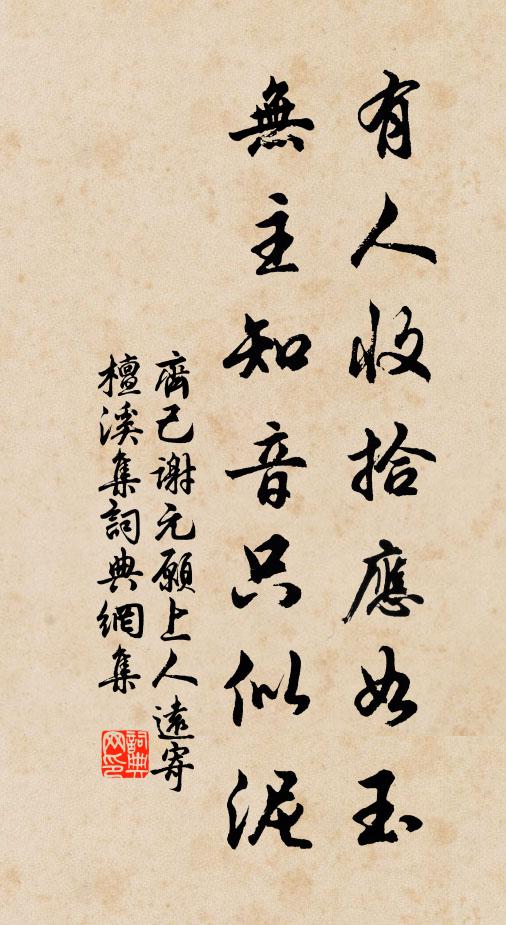 有人收拾應如玉
無主知音只似泥
齊己謝元願上人遠寄
檀溪集詞典網集
詞典
网印